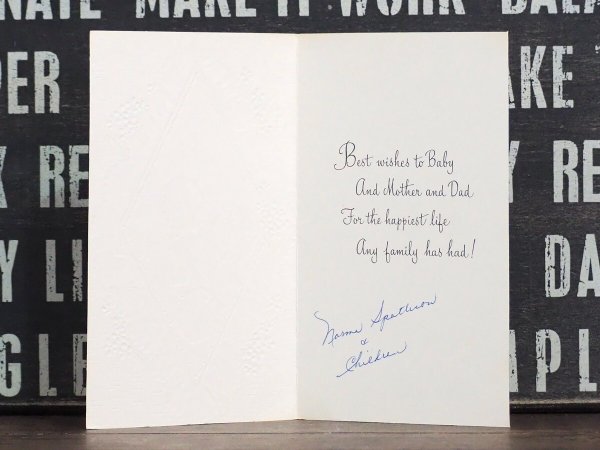 NATE MAKE IT WORK
PER
AKE
RE
RE
Y LI
DA
GLE
MPL
Best wishes to Baby
And Mother and Dad
For the happiest life
Any family has had!
Norma
&
Children